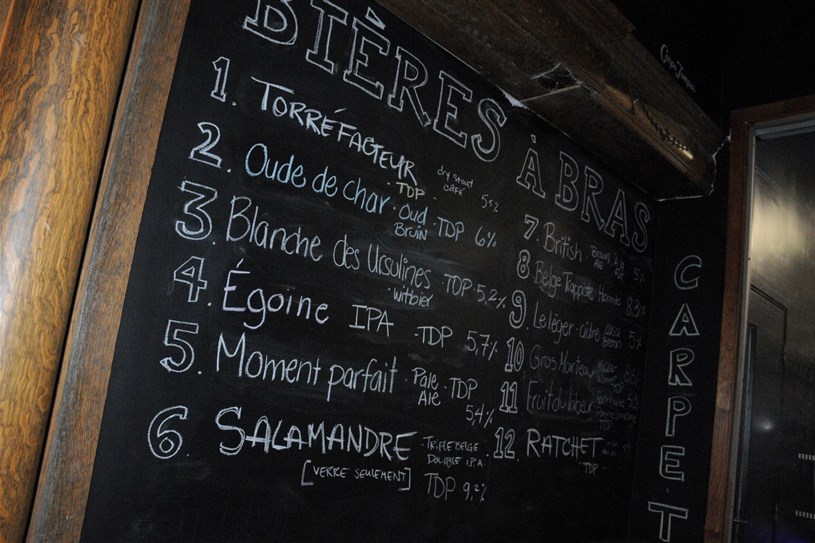 BIÈRES À BRAS
1. TORRÉFACTEUR
dry stout
café
- TDP - 5%
2. Oude de char · Oud
Bruin
- TDP 6%
3. Blanche des Ursulines
· witbier
TDP - 5,2%
4. Égoïne IPA - TDP - 5,7%
5. Moment parfait · Pale
Ale
· TDP
5,4%
6. SALAMANDRE · TRIPLE BELGE
DOUBLE I.P.A.
[VERRE SEULEMENT] TDP 9,2%
7. British
Ale 5%
8. Belge Trappiste
9. Le léger · cidre
5%
10. Gros Marteau
11. Fruit du labeur
TDP
12. RATCHET
- TDP -
CARPET